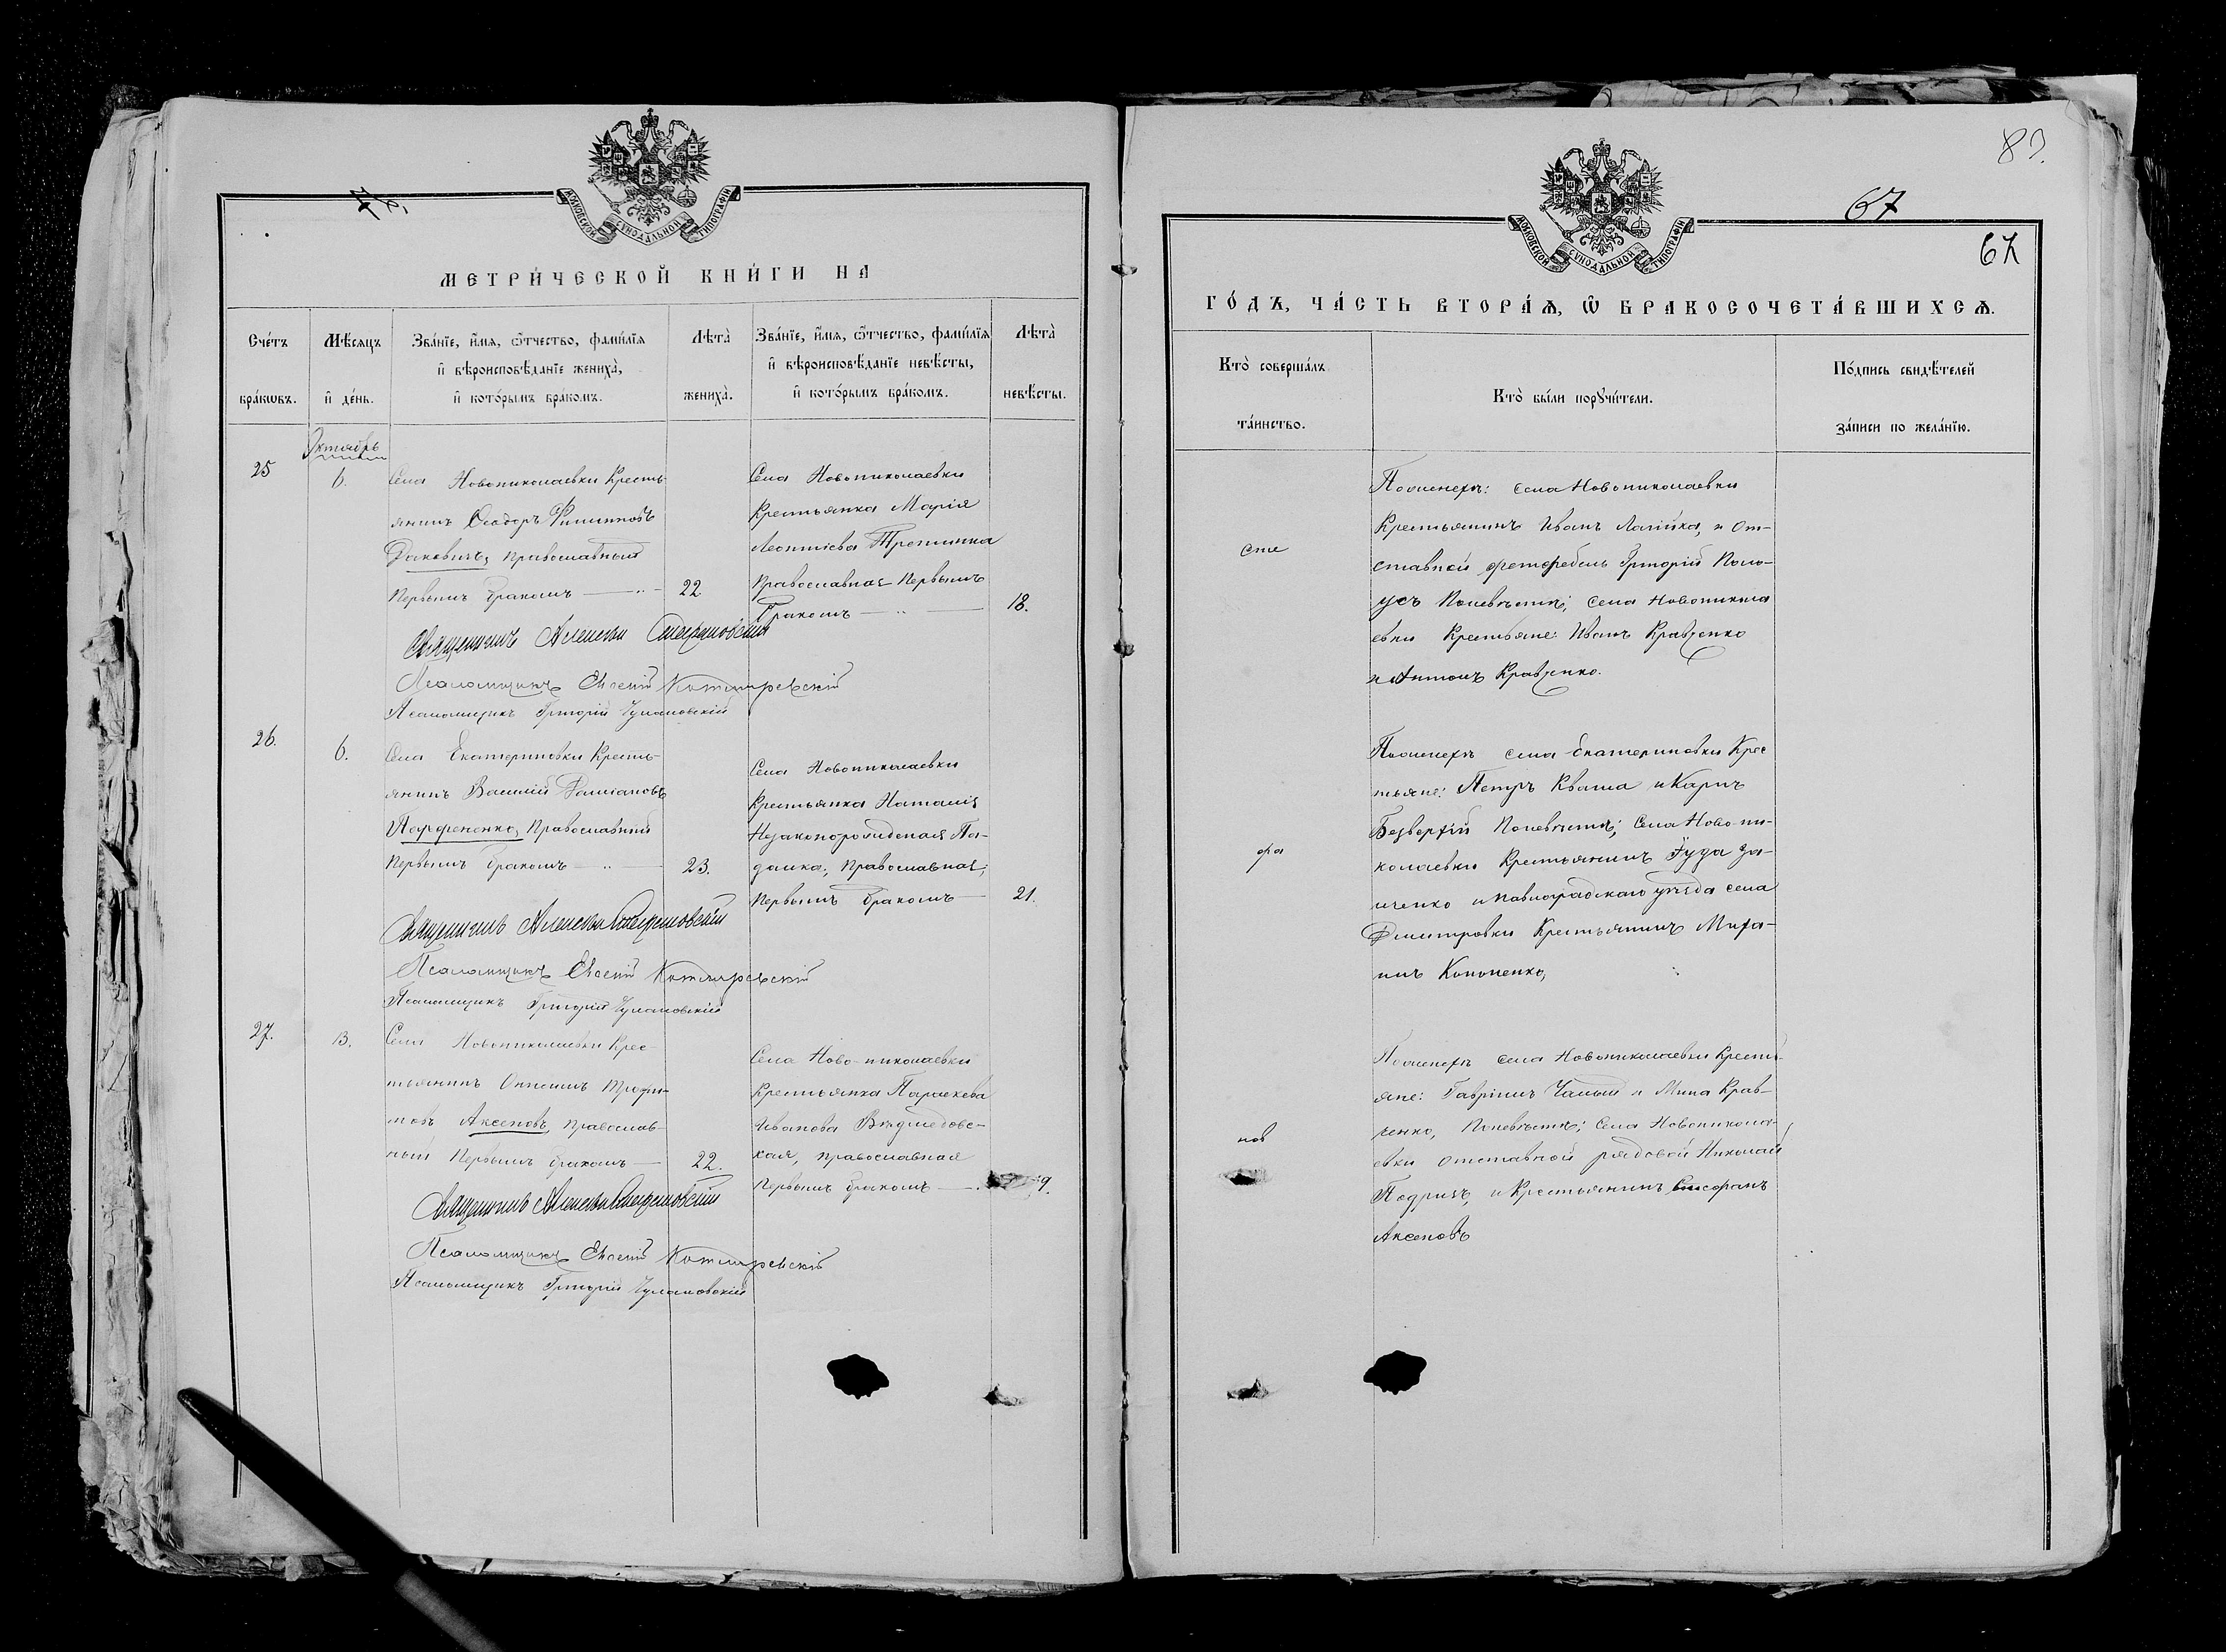 МОСКОВСКОЙ СУНОДАЛЬНОЙ ТИПОГРАФІИ
МЕТРИ́ЧЕСКОЙ КНИ́ГИ НА
Сче́тъ бра́кѡвъ.
Мѣ́сяцъ и҆ де́нь.
Зва́нїе, и҆́мѧ, ѻ҆́тчество, фами́лїѧ
и҆ вѣроисповѣ́данїе жениха̀,
и҆ кото́рымъ бра́комъ.
Лѣта̀ жениха̀.
Зва́нїе, и҆́мѧ, ѻ҆́тчество, фами́лїѧ
и҆ вѣроисповѣ́данїе невѣ́сты,
и҆ кото́рымъ бра́комъ.
Лѣта̀ невѣ́сты.
Октябрь
25
6.
Села Новониколаевки Кресть-
янинъ Ѳеодоръ Филипповъ
Даковичъ, православный
Первымъ бракомъ
22
Села Новониколаевки
Крестьянка Марія
Леонтіева
Православная Первымъ
бракомъ
18.
Священникъ Алексѣй Стефановскій
Псаломщикъ Евсевій Котляревскій
Псаломщикъ Григорій
26.
6.
Села Екатериновки Кресть-
янинъ Василій Даміановъ
Парфененко, Православный
Первымъ бракомъ
23.
Села Новониколаевки
Крестьянка Наталія
Незаконорожденая Па-
далка, Православная,
Первымъ бракомъ
21.
Священникъ Алексѣй Стефановскій
Псаломщикъ Евсевій Котляревскій
Псаломщикъ Григорій
27.
13.
Села Новониколаевки Крес-
тьянинъ Онисимъ Трофи-
мовъ Аксеновъ, Православ-
ный Первымъ бракомъ
22.
Села Ново-николаевки
Крестьянка Параскева
Иванова Вѣдмедовс-
кая, православная
Первымъ бракомъ
9.
Священникъ Алексѣй Стефановскій
Псаломщикъ Евсевій Котляревскій
Псаломщикъ Григорій
67
67
МОСКОВСКОЙ СУНОДАЛЬНОЙ ТИПОГРАФІИ
ГО́ДЪ, ЧА́СТЬ ВТОРА́Ѧ, Ѽ БРАКОСОЧЕТА́ВШИХСѦ.
Кто̀ соверша́лъ та́инство.
Кто̀ бы́ли порꙋчи́тели.
По́дпись свидѣ́телей
за́писи по жела́нїю.
сте
По женихѣ: села Новониколаевки
Крестьянинъ Иванъ Латійка, и От-
ставной фельдфебель Григорій Поло-
усъ По невѣстѣ; Села Новоникола
евки Крестьяне: Иванъ Кравченко
и Антонъ Кравченко.
фа
По женихѣ села Екатериновки Крес
тьяне: Петръ Кваша и Карпъ
Безверхій По невѣстѣ; Села Ново-ни-
колаевки Крестьянинъ Іуда За-
иченко и Павлоградскаго уѣзда села
Дмитровки Крестьянинъ Миха-
илъ Кононенко,
нов
По женихѣ села Новониколаевки Кресть-
яне: Гавріилъ Чалый и Мина Крав-
ченко, По невѣстѣ; Села Новоникола-
евки отставной рядовой Николай
и Крестьянинъ Стефанъ
Аксеновъ